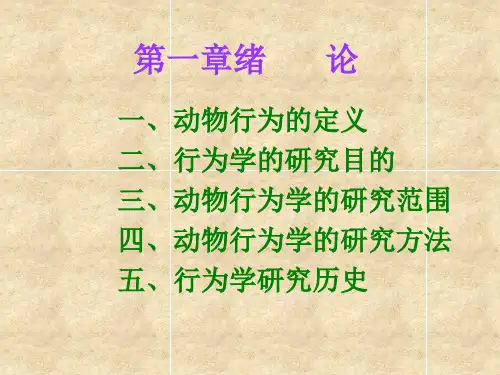 第一章绪　　论
一、动物行为的定义
二、行为学的研究目的
三、动物行为学的研究范围
四、动物行为学的研究方法
五、行为学研究历史